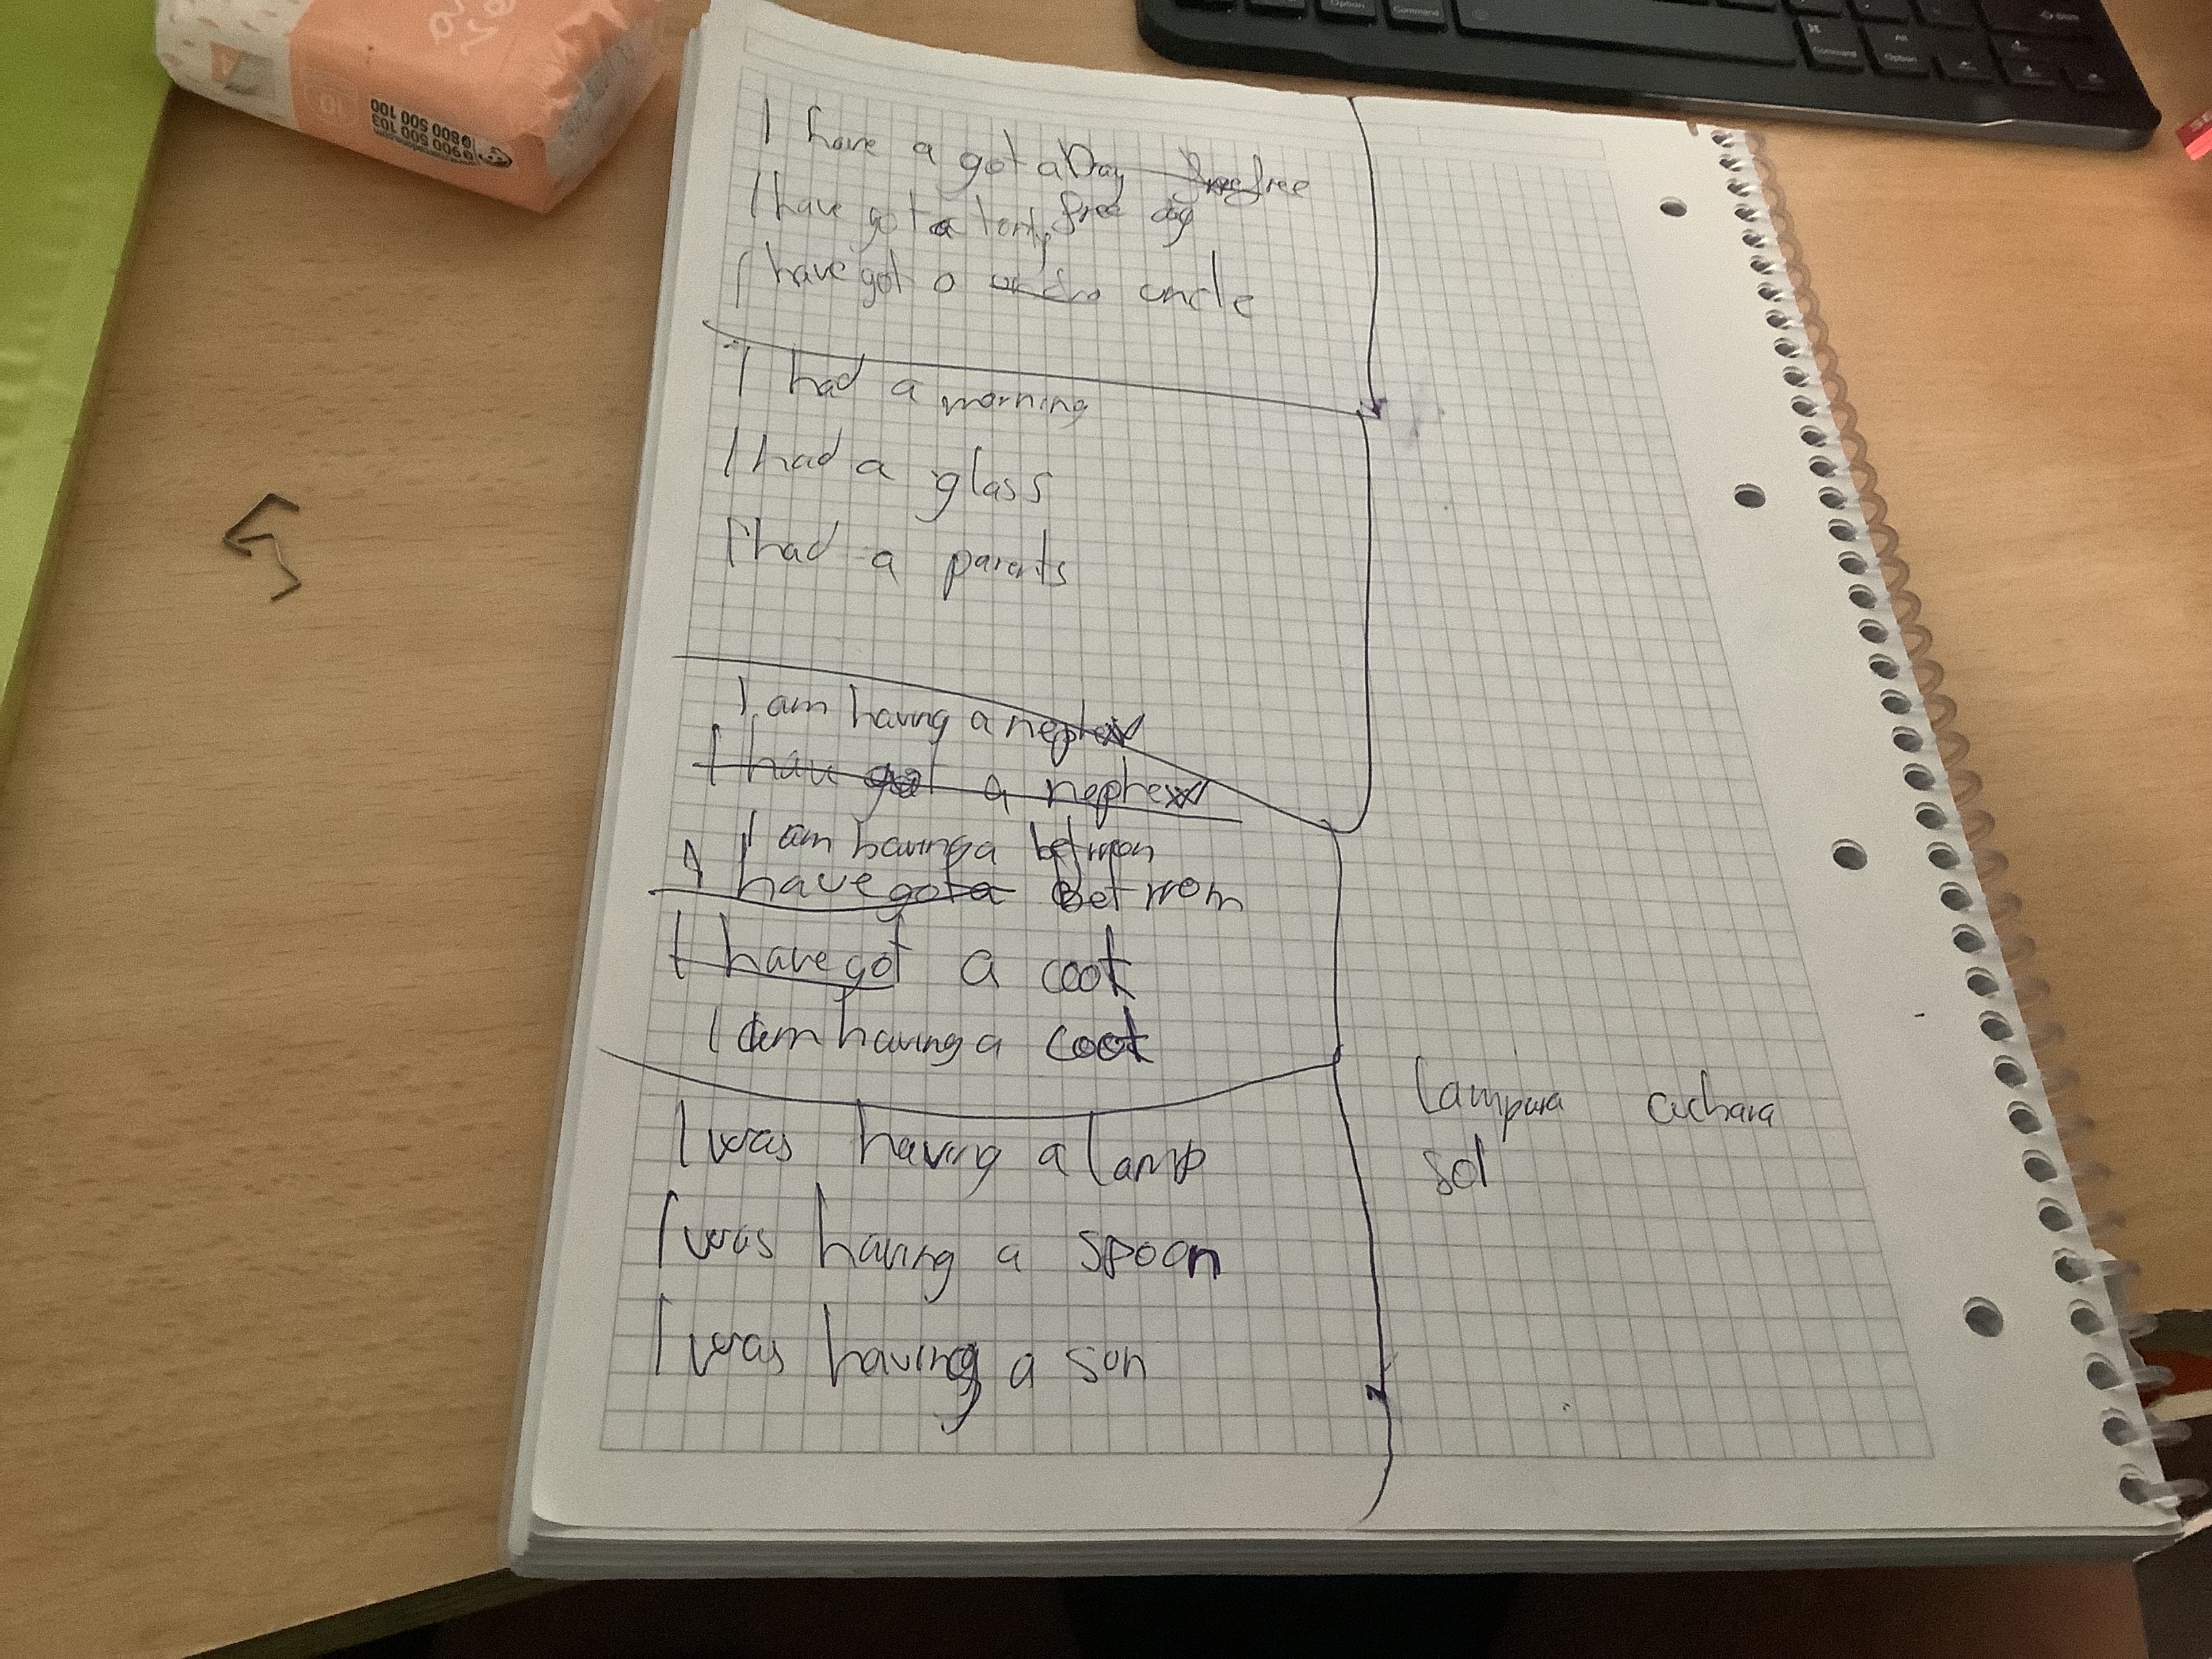 900 500 103
800 500 100
10
Option
Command
Command
Alt
Option
Shift
I have a got a Day free
I have got a free day
I have got a uncle
I had a morning
I had a glass
I had a parents
I am having a nephew
I have got a nephew
I am having a
I have got a Betwen
I have got a coot
I am having a coot
I was having a lamp
I was having a spoon
I was having a son
lampara cuchara
sol